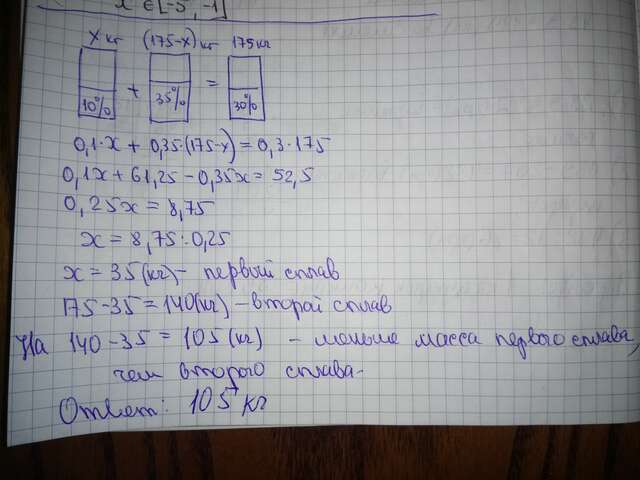 x ∈ [-5; -1]
x кг (175-x) кг 175 кг
10% + 35% = 30%
0,1·x + 0,35(175-x) = 0,3·175
0,1x + 61,25 - 0,35x = 52,5
0,25x = 8,75
x = 8,75 : 0,25
x = 35(кг) - первый сплав
175-35 = 140(кг) - второй сплав
На 140-35 = 105 (кг) - меньше масса первого сплава,
чем второго сплава.
Ответ: 105 кг